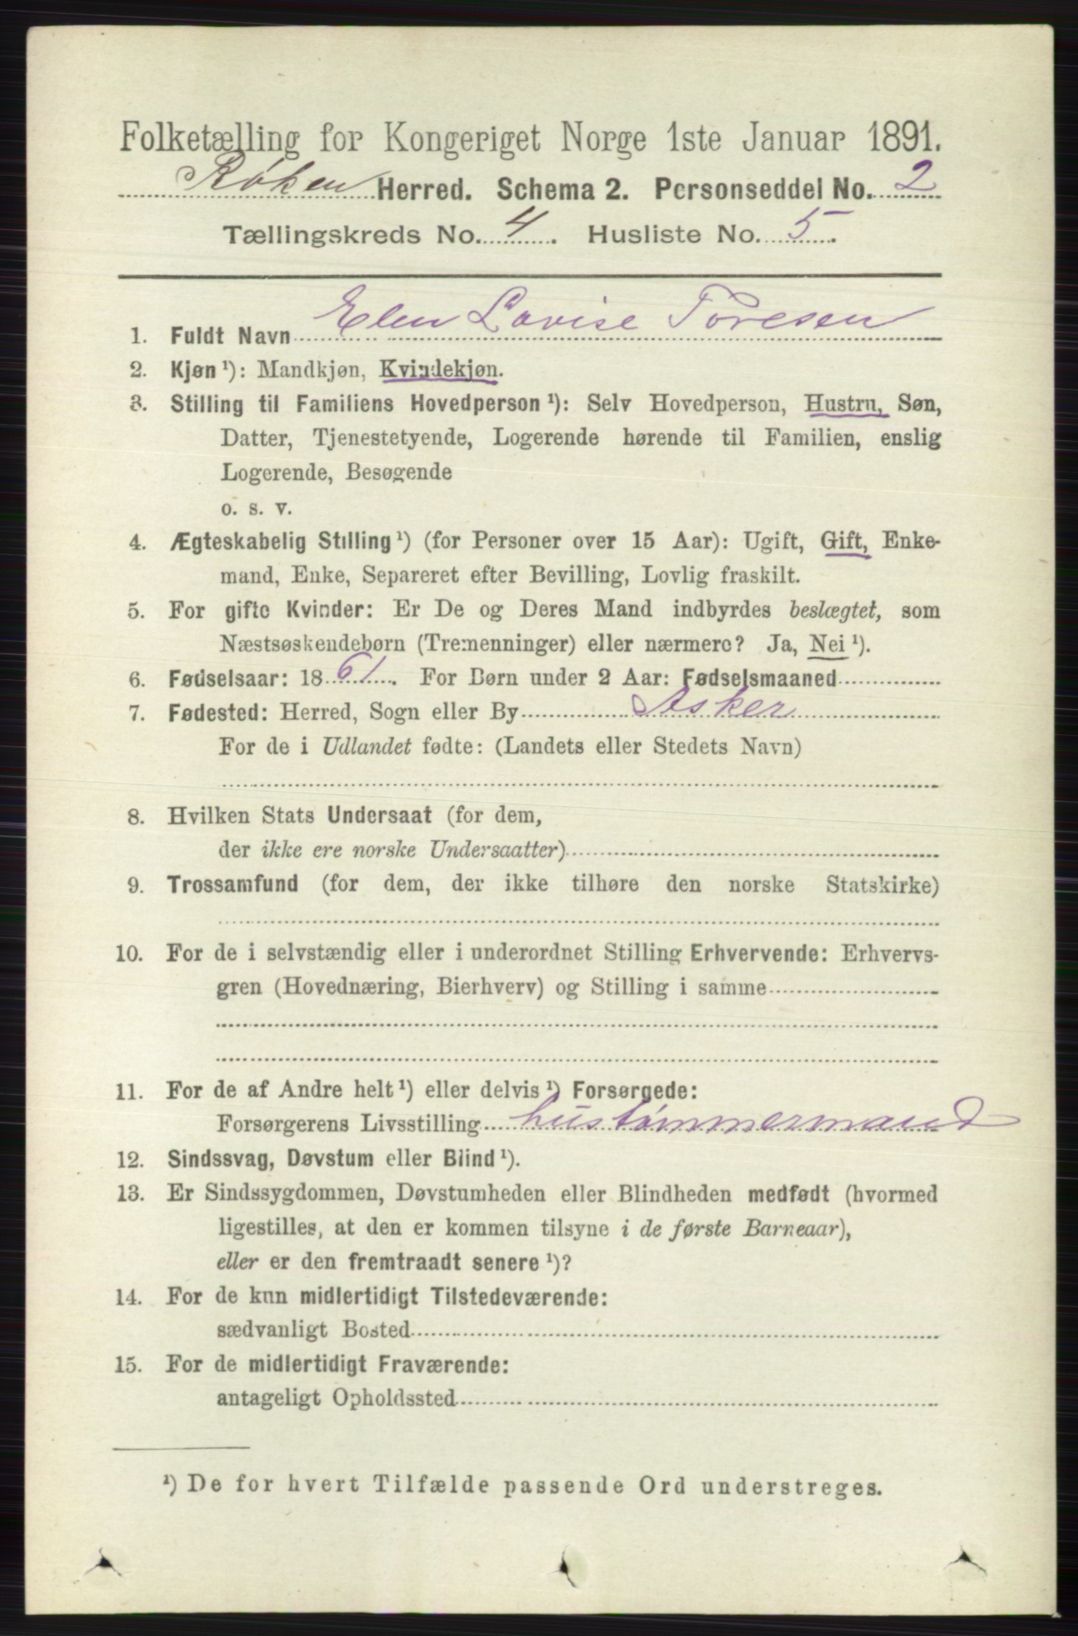 Folketælling for Kongeriget Norge 1ste Januar 1891.
Røken Herred. Schema 2. Personseddel No. 2
Tællingskreds No. 4. Husliste No. 5.
1. Fuldt Navn Elen Lovise Toresen
2. Kjøn¹): Mandkjøn, Kvindekjøn.
3. Stilling til Familiens Hovedperson¹): Selv Hovedperson, Hustru, Søn,
Datter, Tjenestetyende, Logerende hørende til Familien, enslig
Logerende, Besøgende
o. s. v.
4. Ægteskabelig Stilling¹) (for Personer over 15 Aar): Ugift, Gift, Enke-
mand, Enke, Separeret efter Bevilling, Lovlig fraskilt.
5. For gifte Kvinder: Er De og Deres Mand indbyrdes beslægtet, som
Næstsøskendebørn (Tremenninger) eller nærmere? Ja, Nei¹).
6. Fødselsaar: 1861. For Børn under 2 Aar: Fødselsmaaned
7. Fødested: Herred, Sogn eller By Asker
For de i Udlandet fødte: (Landets eller Stedets Navn)
8. Hvilken Stats Undersaat (for dem,
der ikke ere norske Undersaatter)
9. Trossamfund (for dem, der ikke tilhøre den norske Statskirke)
10. For de i selvstændig eller i underordnet Stilling Erhvervende: Erhvervs-
gren (Hovednæring, Bierhverv) og Stilling i samme
11. For de af Andre helt¹) eller delvis¹) Forsørgede:
Forsørgerens Livsstilling hustømmermand
12. Sindssvag, Døvstum eller Blind¹).
13. Er Sindssygdommen, Døvstumheden eller Blindheden medfødt (hvormed
ligestilles, at den er kommen tilsyne i de første Barneaar),
eller er den fremtraadt senere¹)?
14. For de kun midlertidigt Tilstedeværende:
sædvanligt Bosted
15. For de midlertidigt Fraværende:
antageligt Opholdssted
¹) De for hvert Tilfælde passende Ord understreges.